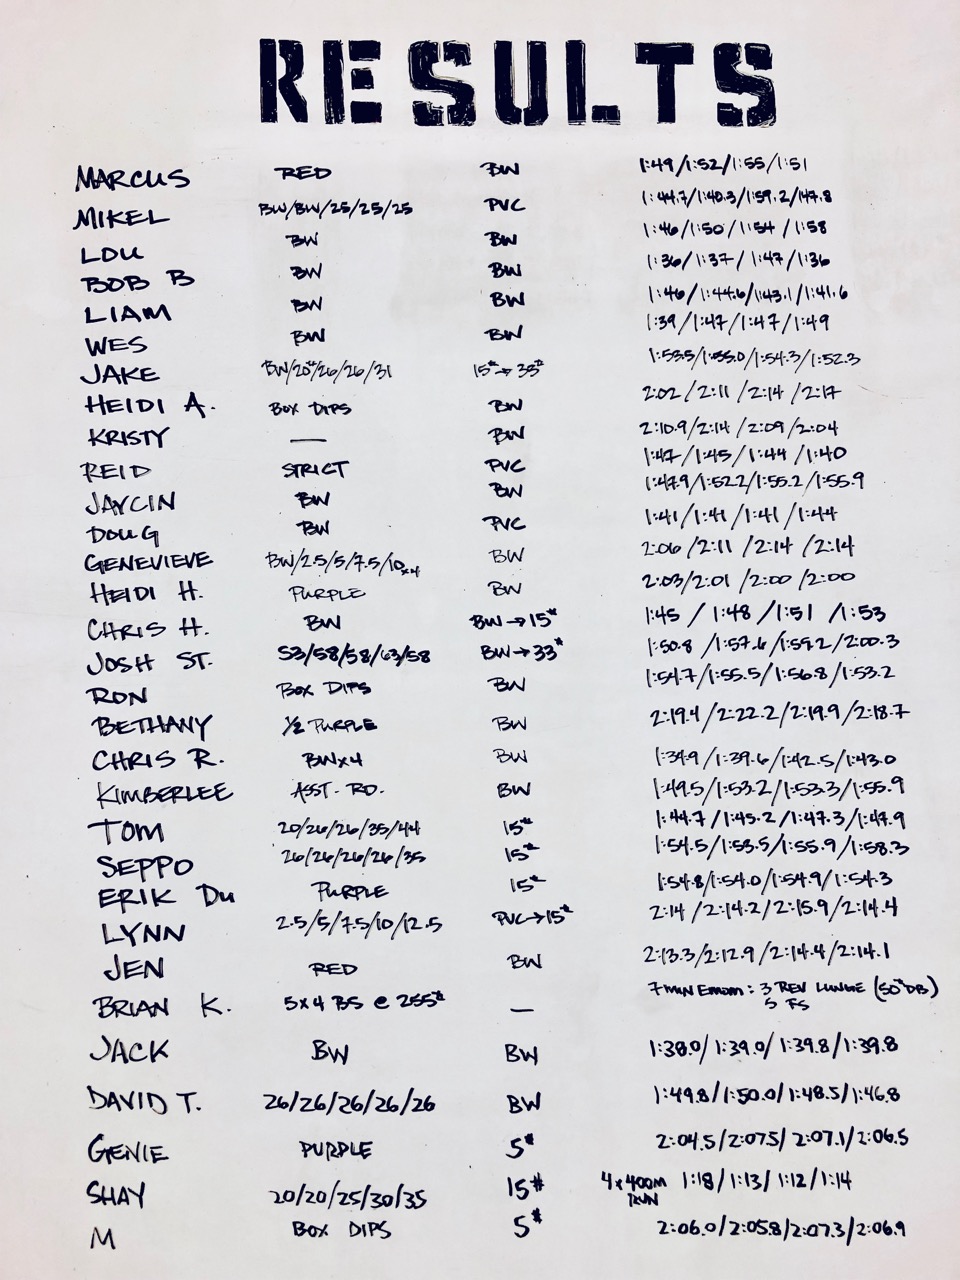 RESULTS
MARCUS RED BW 1:49/1:52/1:55/1:51
MIKEL BW/BW/25/25/25 PVC 1:44.7/1:40.3/1:59.2/147.8
LOU BW BW 1:46/1:50/1:54/1:58
BOB B BW BW 1:36/1:37/1:47/1:36
LIAM BW BW 1:46/1:44.6/1:43.1/1:41.6
WES BW BW 1:39/1:47/1:47/1:49
JAKE BW/20#/26/26/31 15#→35# 1:53.5/1:55.0/1:54.3/1:52.3
HEIDI A. BOX DIPS BW 2:02/2:11/2:14/2:17
KRISTY — BW 2:10.9/2:14/2:09/2:04
REID STRICT PVC 1:47/1:45/1:44/1:40
JAYCIN BW BW 1:47.9/1:52.2/1:55.2/1:55.9
DOUG BW PVC 1:41/1:41/1:41/1:44
GENEVIEVE BW/2.5/5/7.5/10x4 BW 2:06/2:11/2:14/2:14
HEIDI H. PURPLE BW 2:03/2:01/2:00/2:00
CHRIS H. BW BW→15# 1:45/1:48/1:51/1:53
JOSH ST. 53/58/58/63/58 BW→33# 1:50.8/1:57.6/1:59.2/2:00.3
RON BOX DIPS BW 1:54.7/1:55.5/1:56.8/1:53.2
BETHANY 1/2 PURPLE BW 2:19.4/2:22.2/2:19.9/2:18.7
CHRIS R. BWx4 BW 1:39.9/1:39.6/1:42.5/1:43.0
KIMBERLEE ASST. RD. BW 1:49.5/1:53.2/1:53.3/1:55.9
TOM 20/26/26/35/44 15# 1:44.7/1:45.2/1:47.3/1:47.9
SEPPO 26/26/26/26/35 15# 1:54.5/1:53.5/1:55.9/1:58.3
ERIK DU PURPLE 15# 1:54.8/1:54.0/1:54.9/1:54.3
LYNN 2.5/5/7.5/10/12.5 PVC→15# 2:14/2:14.2/2:15.9/2:14.4
JEN RED BW 2:13.3/2:12.9/2:14.4/2:14.1
BRIAN K. 5x4 BS @ 255# — 7 MIN EMOM: 3 REV LUNGE (50#DB)
5 FS
JACK BW BW 1:38.0/1:39.0/1:39.8/1:39.8
DAVID T. 26/26/26/26/26 BW 1:49.8/1:50.0/1:48.5/1:46.8
GENIE PURPLE 5# 2:04.5/2:07.5/2:07.1/2:06.5
SHAY 20/20/25/30/35 15# 4x400M RUN 1:18/1:13/1:12/1:14
M BOX DIPS 5# 2:06.0/2:05.8/2:07.3/2:06.9